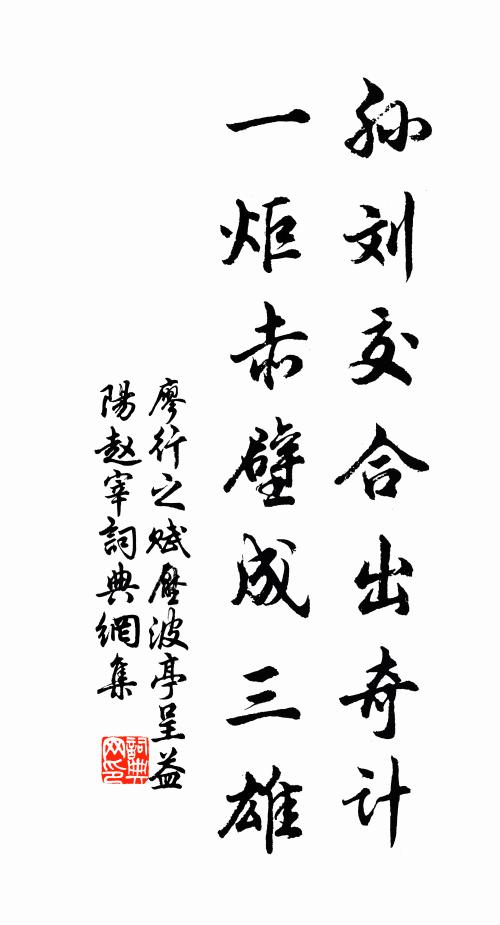 孙刘交合出奇计
一炬赤壁成三雄
廖行之赋壓波亭呈益
陽赵宰詞典網集
詞典
网印